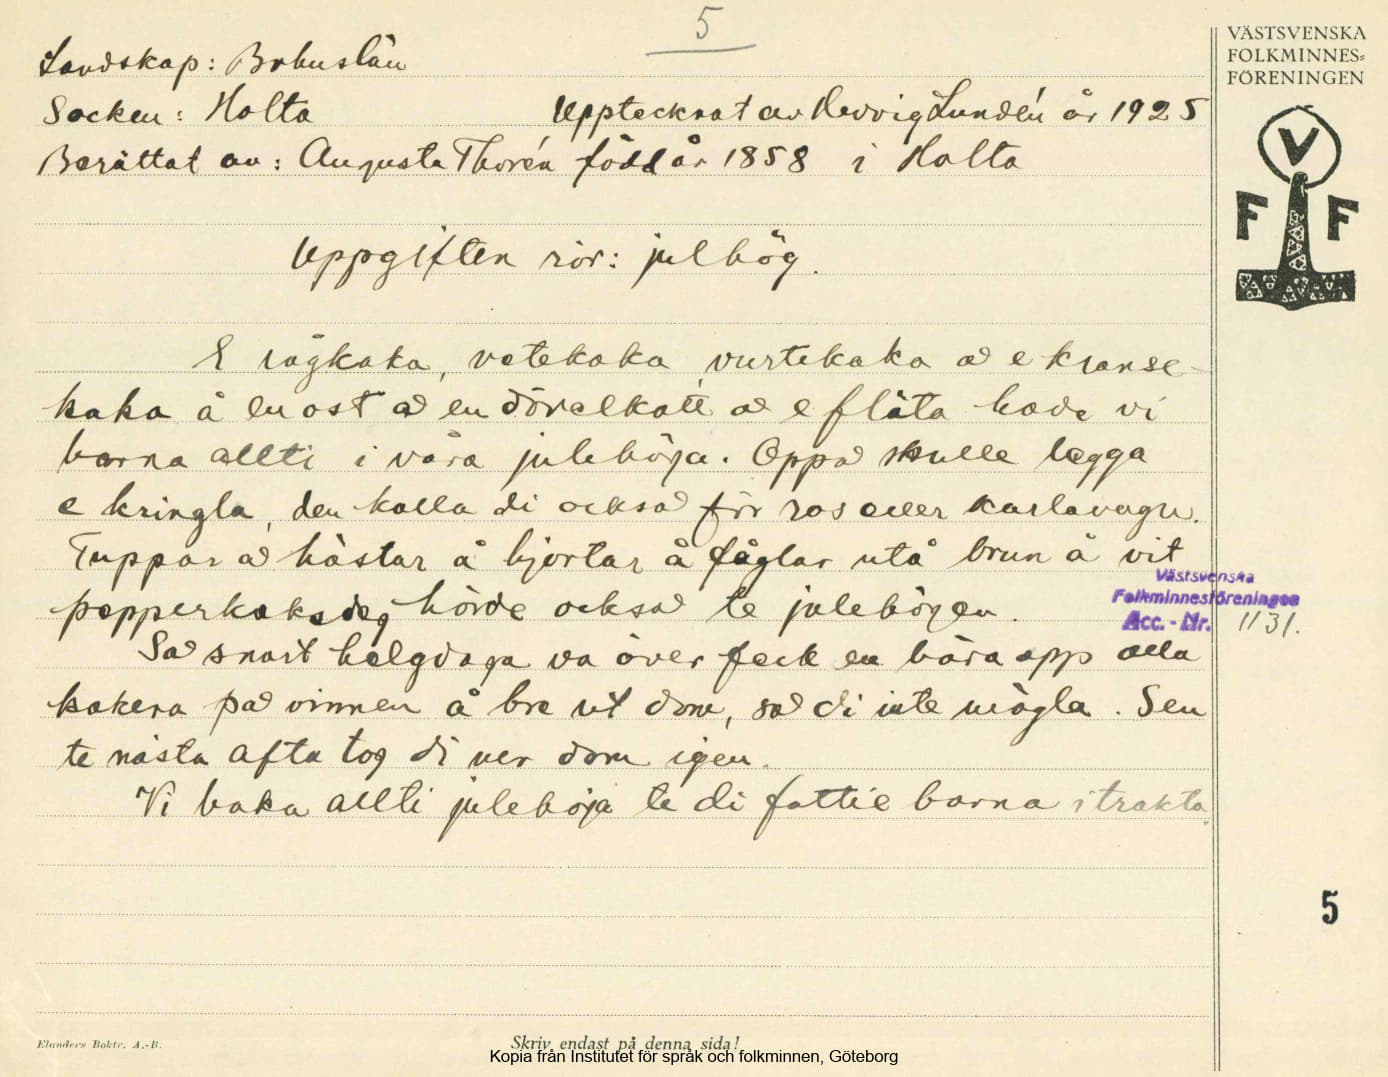 5
Landskap: Bohuslän
Socken: Holta Upptecknat av Hedvig Lundén år 1925
Berättat av: Augusta Thorén född år 1858 i Holta
Uppgiften rör: julhög.
E rågkaka, vetekaka, vurtekaka å e kranse-
kaka å en ost å en dövelkatt å e flåta hade vi
barna allti i våra julehöja. Oppå skulle legga
e kringla, den kalla di också för ros eller karlavagn.
Tuppar å hästar å hjortar å fåglar utå brun å vit
pepperkaksdeg hörde också te julehögen.
Så snart helgdaga va över feck en bära opp alla
kakera på vinnen å bre ut dom, så di inte mögla. Sen
te nästa afta tog di ner dom igen.
Vi baka allti julehöja te di fattie barna i trakta.
VÄSTSVENSKA
FOLKMINNES-
FÖRENINGEN
V
F F
Västsvenska
Folkminnesföreningen
Acc. - Nr. 1131.
5
Elanders Boktr. A.-B.
Skriv endast på denna sida!
Kopia från Institutet för språk och folkminnen, Göteborg